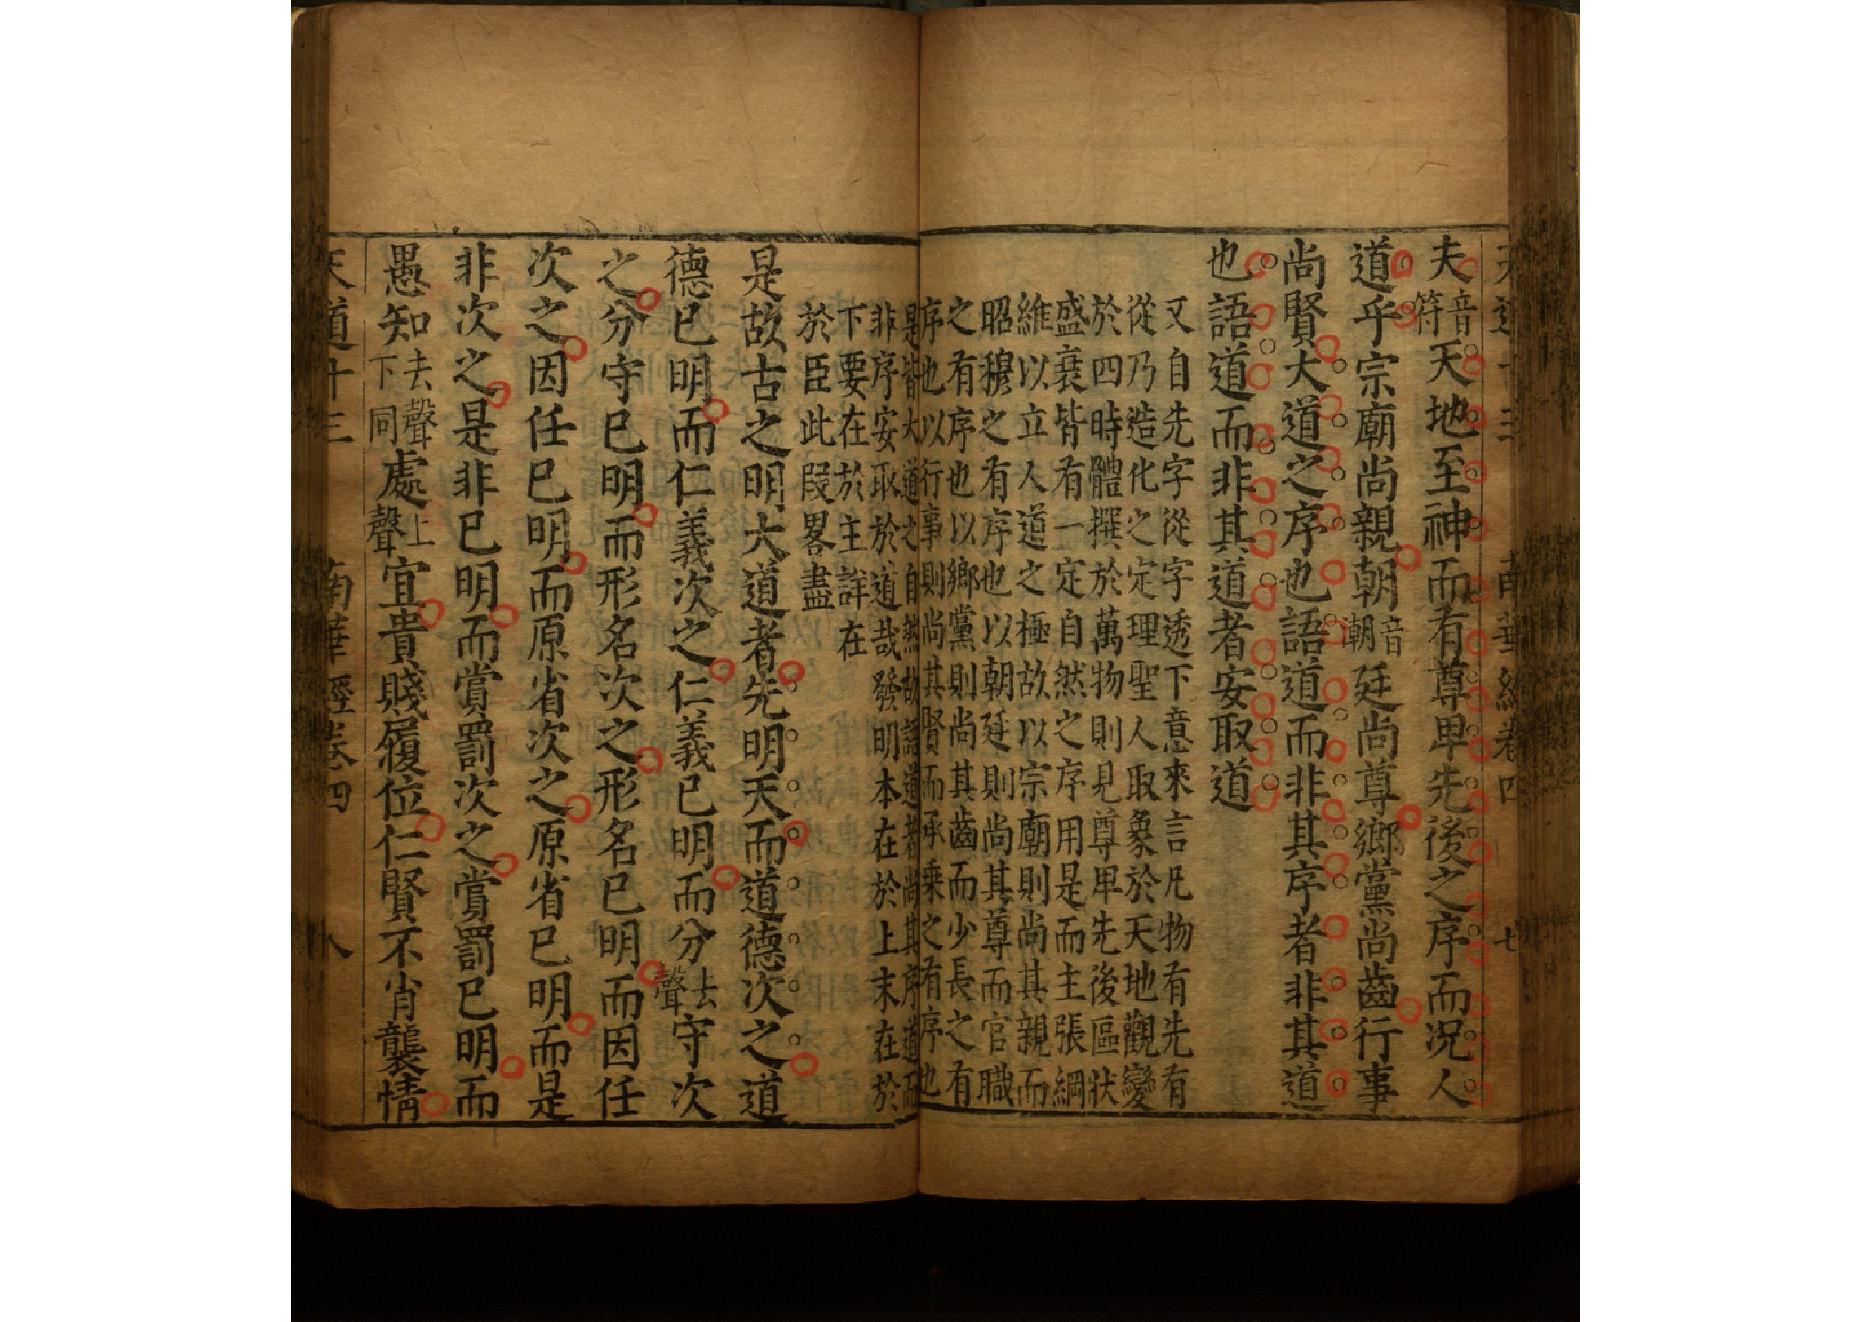 天道十三　南華經卷四　七
夫音符天地至神而有尊卑先後之序而況人
道乎宗廟尚親朝音潮廷尚尊鄉黨尚齒行事
尚賢大道之序也語道而非其序者非其道
也語道而非其道者安取道
又自先字從字透下意來言凡物有先有
從乃造化之定理聖人取象於天地觀變
於四時體撰於萬物則見尊卑先後區狀
盛衰皆有一定自然之序用是而主張綱
維以立人道之極故以宗廟則尚其親而
昭穆之有序也以朝廷則尚其尊而官職
之有序也以鄉黨則尚其齒而少長之有
序也以行事則尚其賢而承乘之有序也
是皆大道之自然故語道者尚其序道而
非序安取於道哉發明本在於上末在於
下要在於主詳在
於臣此段畧盡
是故古之明大道者先明天而道德次之道
德已明而仁義次之仁義已明而分去聲守次
之分守已明而形名次之形名已明而因任
次之因任已明而原省次之原省已明而是
非次之是非已明而賞罰次之賞罰已明而
愚知去聲下同處上聲宜貴賤履位仁賢不肖襲情
天道十三　南華經卷四　八